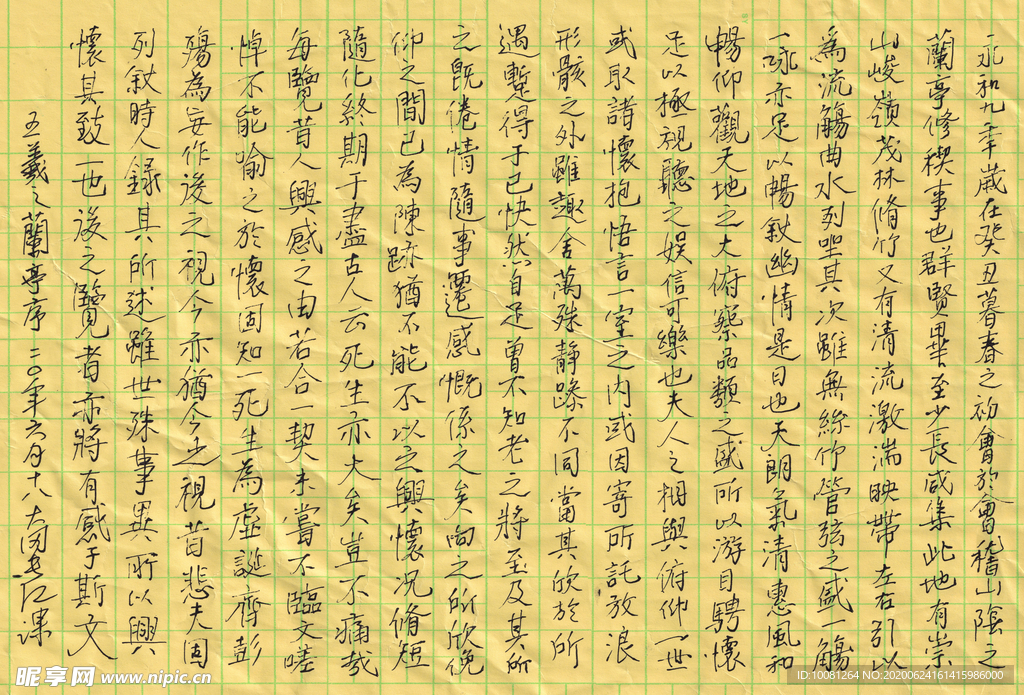 永和九年歲在癸丑暮春之初會於會稽山陰之
蘭亭修稧事也群賢畢至少長咸集此地有崇
山峻嶺茂林脩竹又有清流激湍映帶左右引以
為流觴曲水列坐其次雖無絲竹管弦之盛一觴
一詠亦足以暢敘幽情是日也天朗氣清惠風和
暢仰觀天地之大俯察品類之盛所以游目騁懷
足以極視聽之娛信可樂也夫人之相與俯仰一世
或取諸懷抱悟言一室之內或因寄所託放浪
形骸之外雖趣舍萬殊靜躁不同當其欣於所
遇蹔得于己快然自足曾不知老之將至及其所
之既倦情隨事遷感慨係之矣向之所欣俛
仰之間已為陳跡猶不能不以之興懷況脩短
隨化終期于盡古人云死生亦大矣豈不痛哉
每覽昔人興感之由若合一契未嘗不臨文嗟
悼不能喻之於懷固知一死生為虛誕齊彭
殤為妄作後之視今亦猶今之視昔悲夫固
列敘時人錄其所述雖世殊事異所以興
懷其致一也後之覽者亦將有感于斯文
羲之蘭亭序二〇年六月十八
昵享网 www.nipic.cn
ID:10081264 NO:20200624161415986000